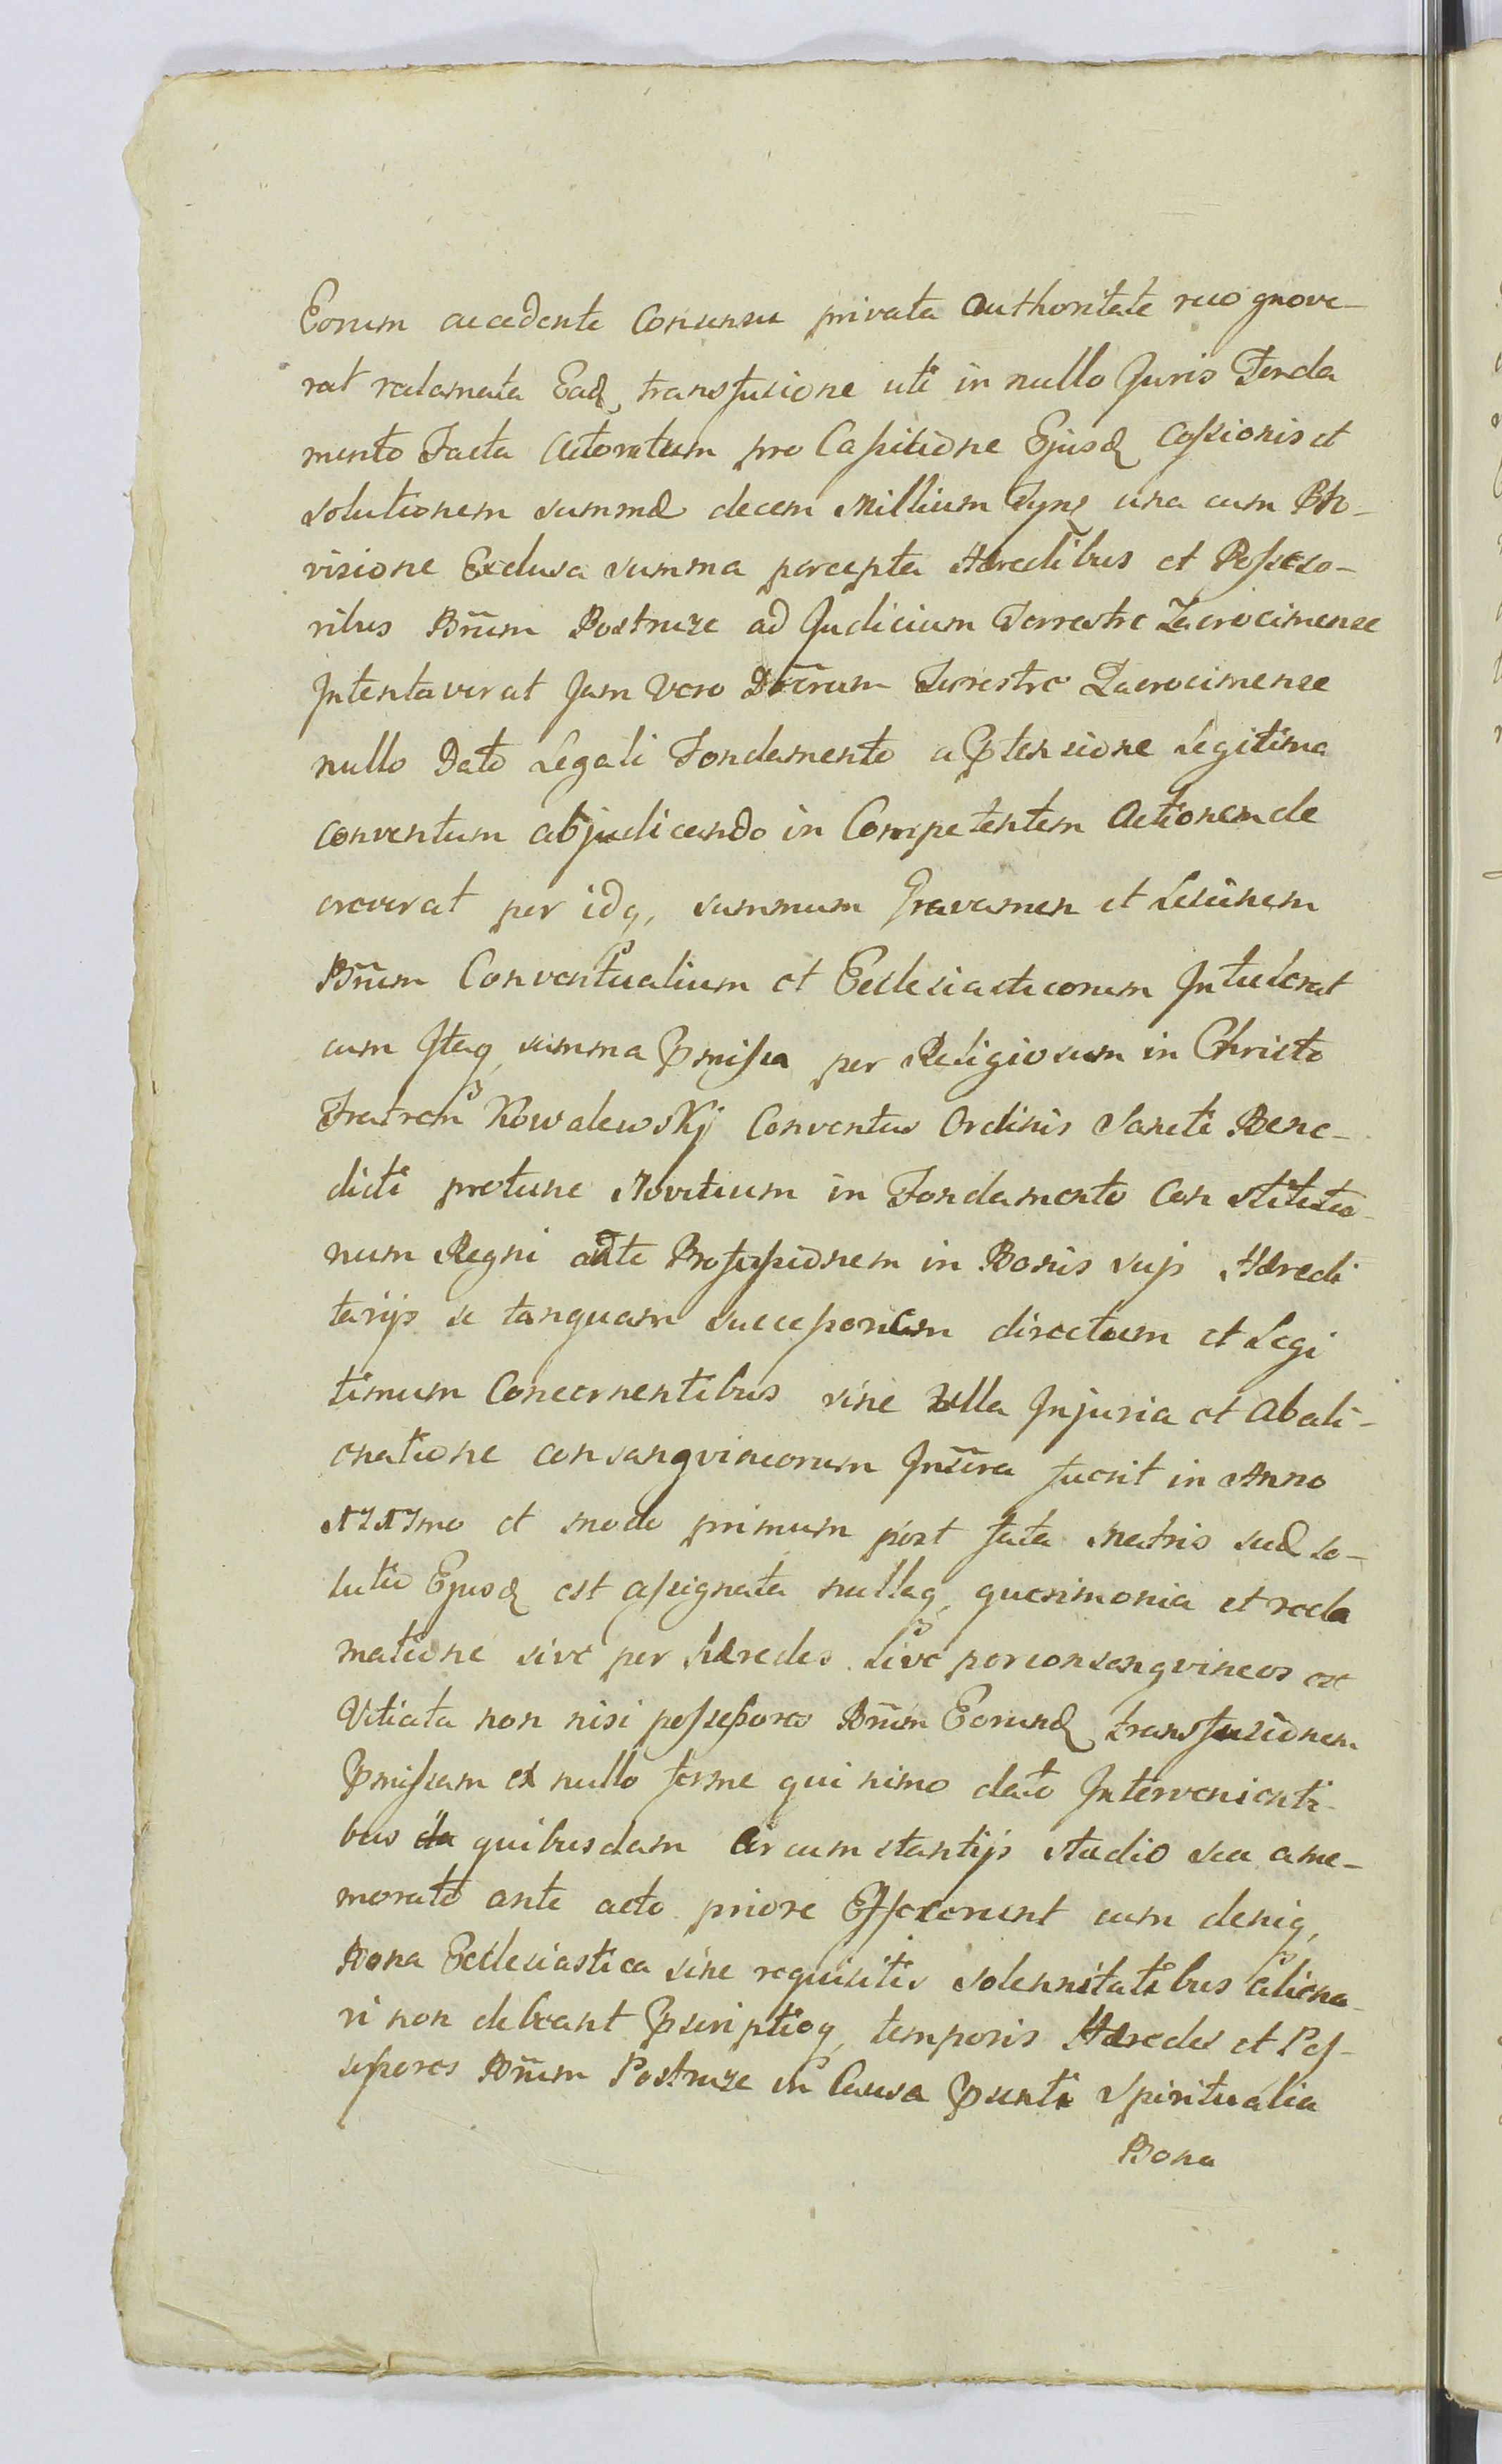 Eorum accedente Consensu privata Authoritate recognove-
rat reclamata Eadꝫ transfusione uti in nullo Juris Fonda
mento Facta Actoratum pro Cassitione Ejusdꝫ Cessionis et
solutionem summæ decem Millium Tynf una cum Pro-
visione Exclusa summa percepta Hæredibus et Possesso-
ribus Bñum Postruze ad Judicium Terrestre Zacrocimense
Intentaverat Jam Vero Terrestre Zacrocimense
nullo Dato Legali Fondamento a Ptensione Legitima
conventum abjudicando in Competentem Actionem de
creverat per idq, summum Gravamen et Lesionem
Bñum Conventualium et Ecclesiasticorum Intulerat
cum Itaq, summa Pmissa per Religiosum in Christo
Fratrem Kowalewskj Conventus Ordinis Sancti Bene-
dicti protunc Novitium in Fondamento Constitutio-
num Regni ante Professionem in Bonis suis Hæredi
tarijs se tanquam successorem directum et Legi
timum Concernentibus sine ulla Injuria et Abali-
enatione consangvineorum Inscra fuerit in Anno
1717mo et modo primum post fata Matris suæ so-
lutio Ejusdꝫ est assignata nullaq, querimonia et recla
matione sive per Hæredes sive per consangvineos est
Vitiata non nisi possessores Bñum Eorundꝫ transfusionem
Pmissam ex nullo ferme qui nimo dato Intervenienti-
bus quibusdam Circumstantijs studio seu a me-
morato ante acto priore Effecerunt cum deniq,
Bona Ecclesiastica sine requisitis solennitatibus aliena-
ri non debeant Pscriptioq, temporis Hæredes et Pos-
sessores Bñum Postruze in Causa Psenti Spiritualia
Bona